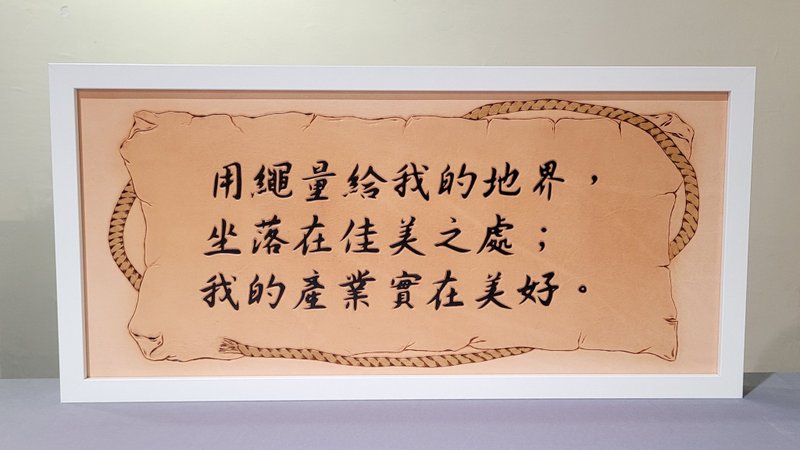 用繩量給我的地界，
坐落在佳美之處；
我的產業實在美好。